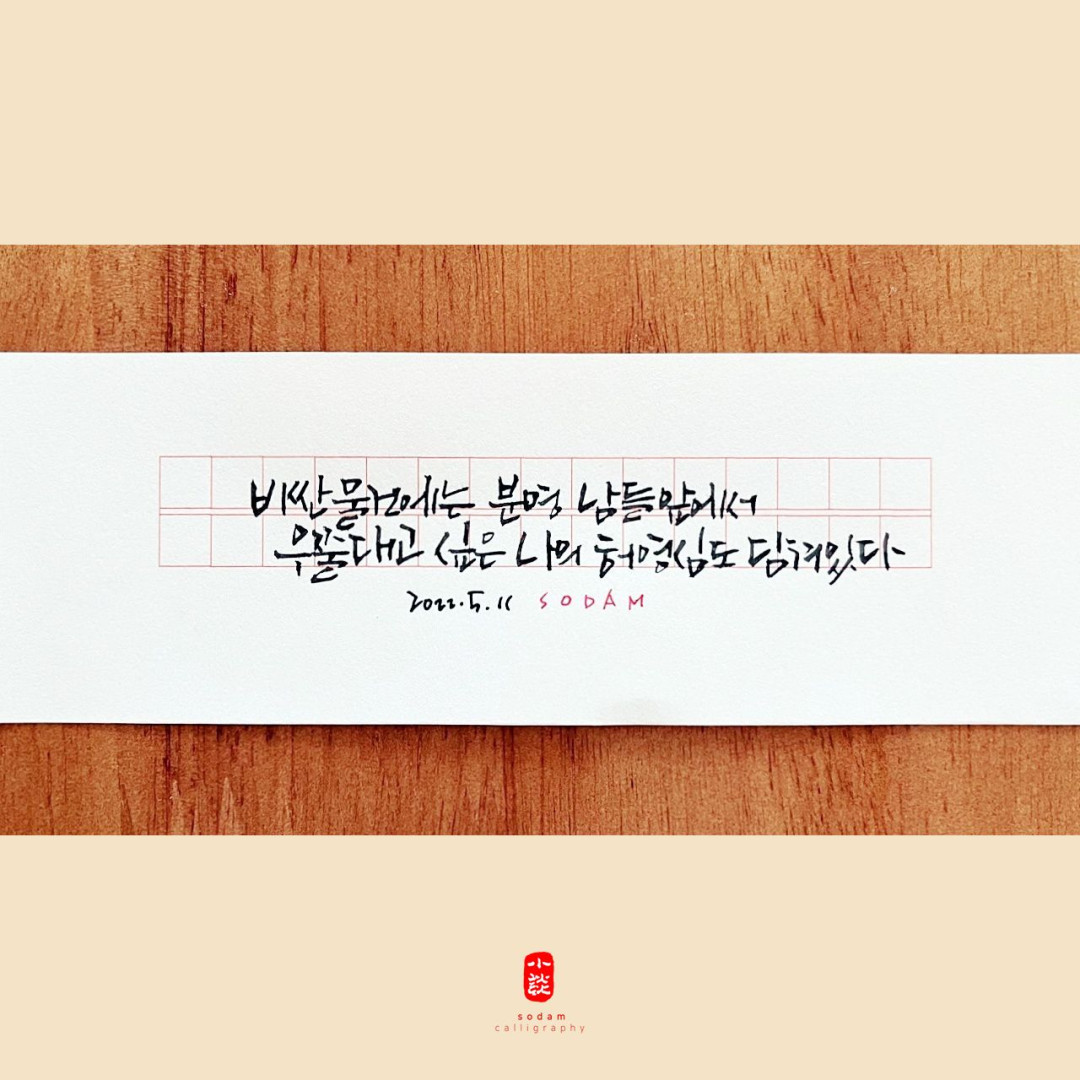 비싼 물건에는 분명 남들 앞에서
우쭐대고 싶은 나의 허영심도 담겨있다
2022.5.11 SODAM
小談
sodam
calligraphy